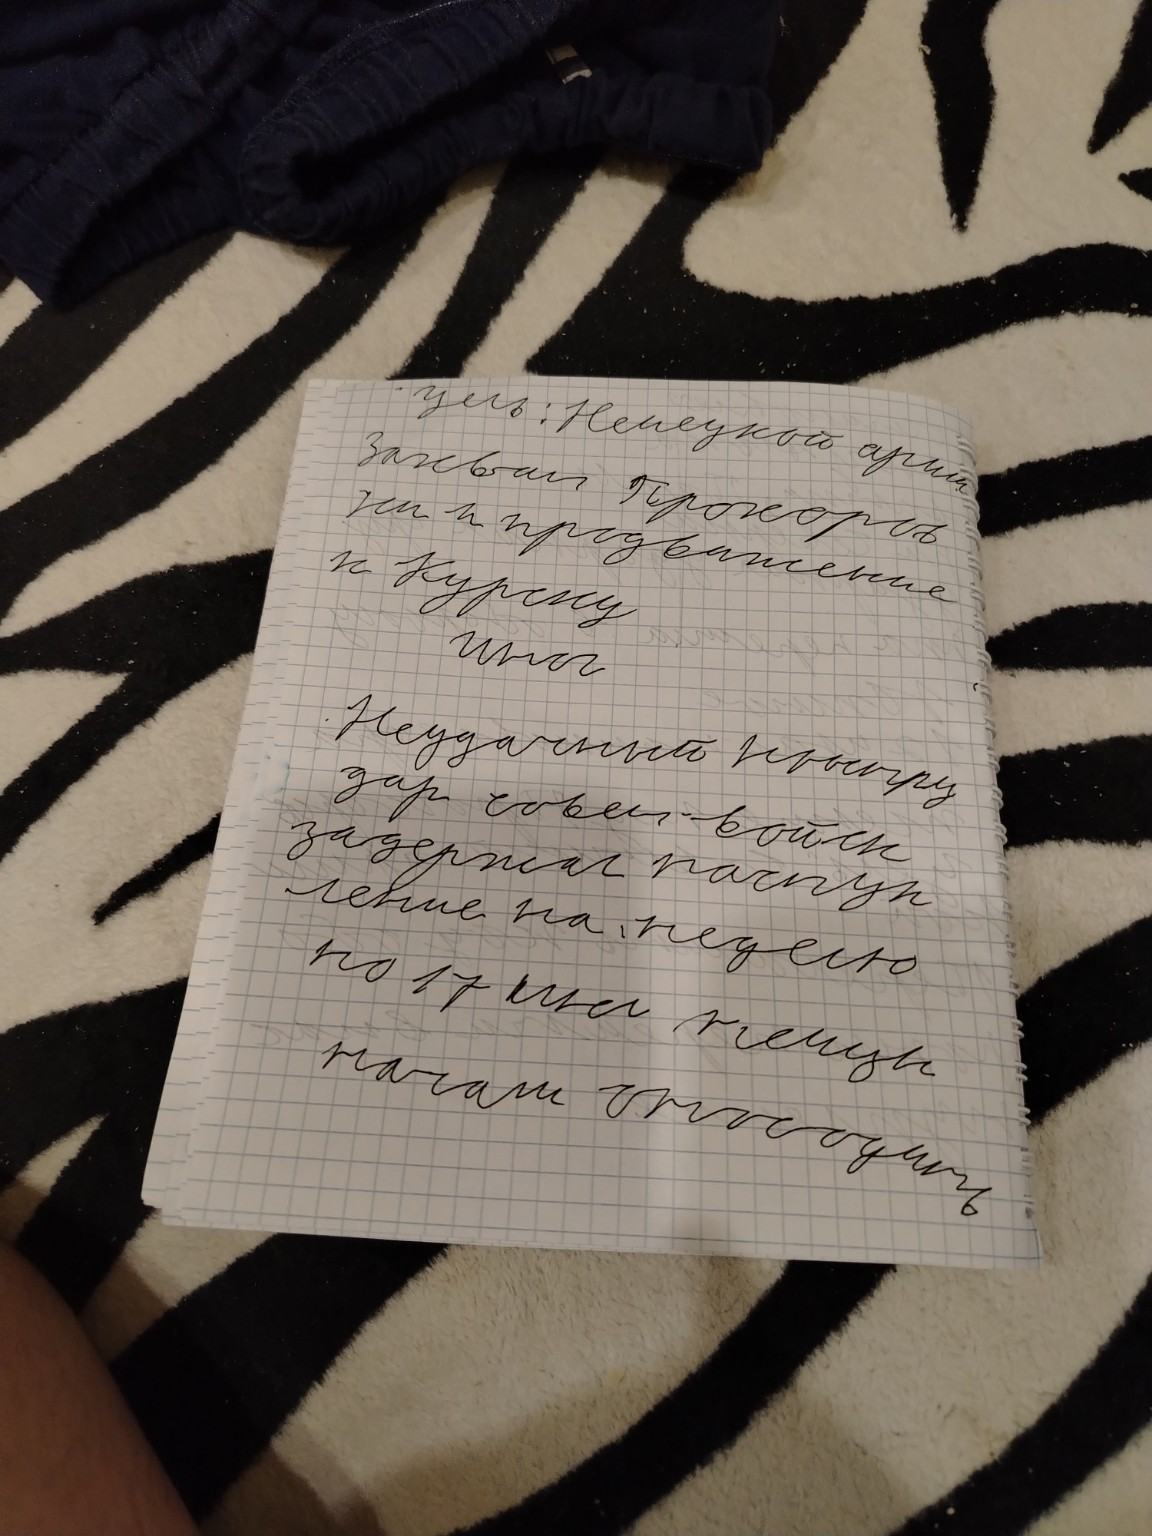 Цель: Немецкой армии
Захват Прохоров
ки и продвижение
к Курску
Итог
Неудачный контру
дар совет. войск
задержал наступ
ление на неделю
но 17 июл немцы
начали отходить